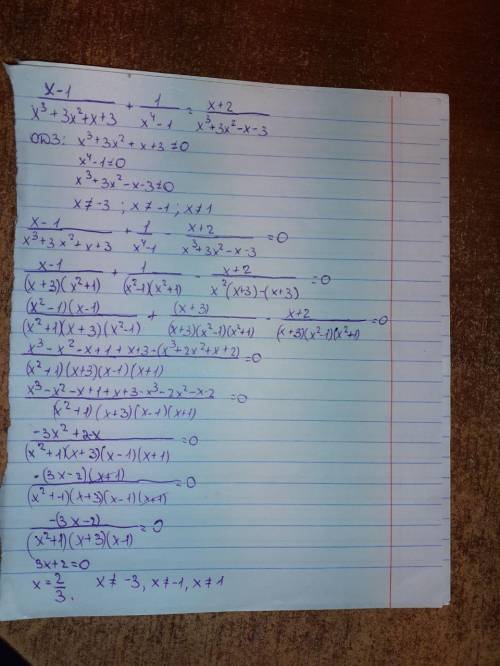 x-1/(x³+3x²+x+3) + 1/(x⁴-1) = x+2/(x³+3x²-x-3)
ОДЗ: x³+3x²+x+3≠0
x⁴-1≠0
x³+3x²-x-3≠0
x≠-3; x≠-1; x≠1
x-1/(x³+3x²+x+3) + 1/(x⁴-1) - x+2/(x³+3x²-x-3) =0
x-1/((x+3)(x²+1)) + 1/((x²-1)(x²+1)) - x+2/(x²(x+3)-(x+3)) =0
(x²-1)(x-1)/((x²+1)(x+3)(x²-1)) + (x+3)/((x+3)(x²-1)(x²+1)) - x+2/((x+3)(x²-1)(x²+1)) =0
x³-x²-x+1+x+3-(x³+2x²+x+2)/((x²+1)(x+3)(x-1)(x+1)) =0
x³-x²-x+1+x+3-x³-2x²-x-2/((x²+1)(x+3)(x-1)(x+1)) =0
-3x²+2-x/((x²+1)(x+3)(x-1)(x+1)) =0
-(3x-2)(x+1)/((x²+1)(x+3)(x-1)(x+1)) =0
-(3x-2)/((x²+1)(x+3)(x-1)) =0
3x+2=0
x=2/3. x≠-3, x≠-1, x≠1